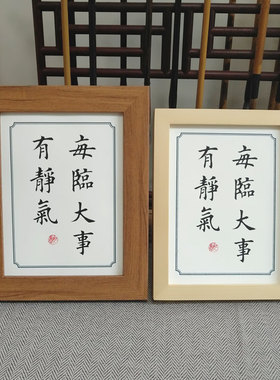 每臨大事
有靜氣
每臨大事
有靜氣